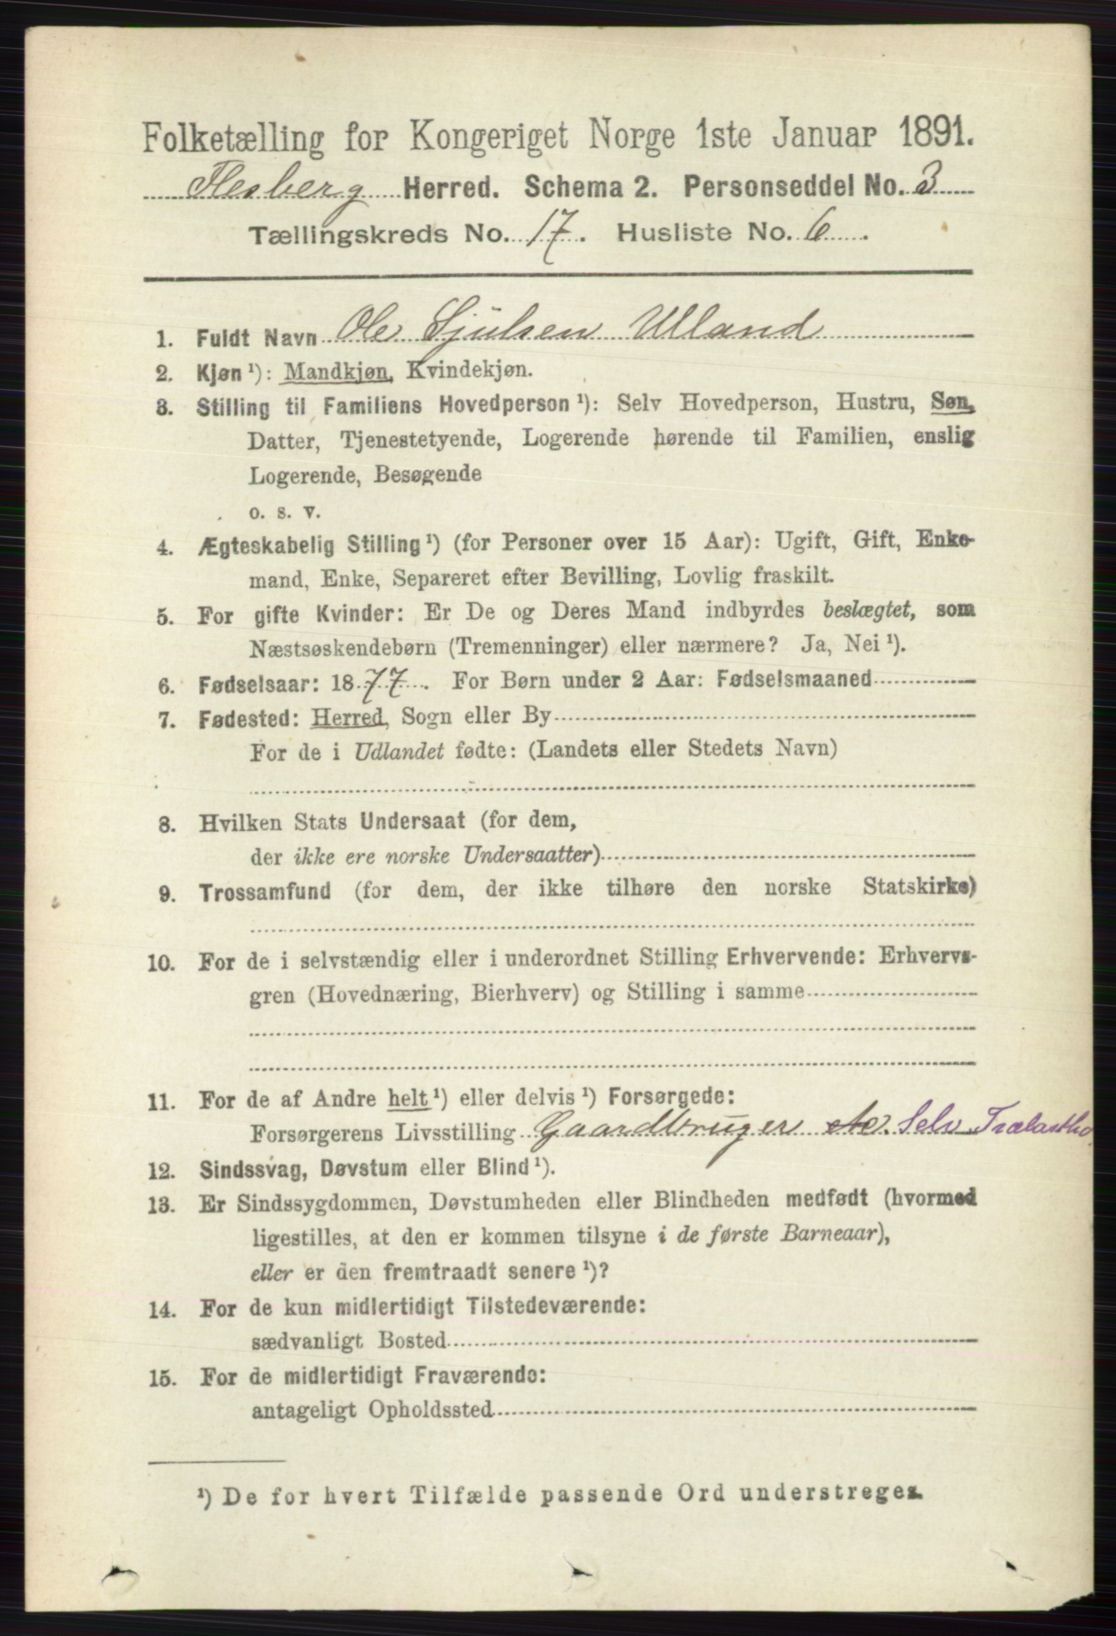 Folketælling for Kongeriget Norge 1ste Januar 1891.
Flesberg Herred. Schema 2. Personseddel No. 3
Tællingskreds No. 17. Husliste No. 6.
1. Fuldt Navn Ole Sjulsen Ulland
2. Kjøn ¹): Mandkjøn, Kvindekjøn.
3. Stilling til Familiens Hovedperson ¹): Selv Hovedperson, Hustru, Søn,
Datter, Tjenestetyende, Logerende hørende til Familien, enslig
Logerende, Besøgende
o. s. v.
4. Ægteskabelig Stilling ¹) (for Personer over 15 Aar): Ugift, Gift, Enke-
mand, Enke, Separeret efter Bevilling, Lovlig fraskilt.
5. For gifte Kvinder: Er De og Deres Mand indbyrdes beslægtet, som
Næstsøskendebørn (Tremenninger) eller nærmere? Ja, Nei ¹).
6. Fødselsaar: 1877. For Børn under 2 Aar: Fødselsmaaned
7. Fødested: Herred, Sogn eller By
For de i Udlandet fødte: (Landets eller Stedets Navn)
8. Hvilken Stats Undersaat (for dem,
der ikke ere norske Undersaatter)
9. Trossamfund (for dem, der ikke tilhøre den norske Statskirke)
10. For de i selvstændig eller i underordnet Stilling Erhvervende: Erhvervs-
gren (Hovednæring, Bierhverv) og Stilling i samme
11. For de af Andre helt ¹) eller delvis ¹) Forsørgede:
Forsørgerens Livsstilling Gaardbruger Selv Trælasth.
12. Sindssvag, Døvstum eller Blind ¹).
13. Er Sindssygdommen, Døvstumheden eller Blindheden medfødt (hvormed
ligestilles, at den er kommen tilsyne i de første Barneaar),
eller er den fremtraadt senere ¹)?
14. For de kun midlertidigt Tilstedeværende:
sædvanligt Bosted
15. For de midlertidigt Fraværende:
antageligt Opholdssted
¹) De for hvert Tilfælde passende Ord understreges.